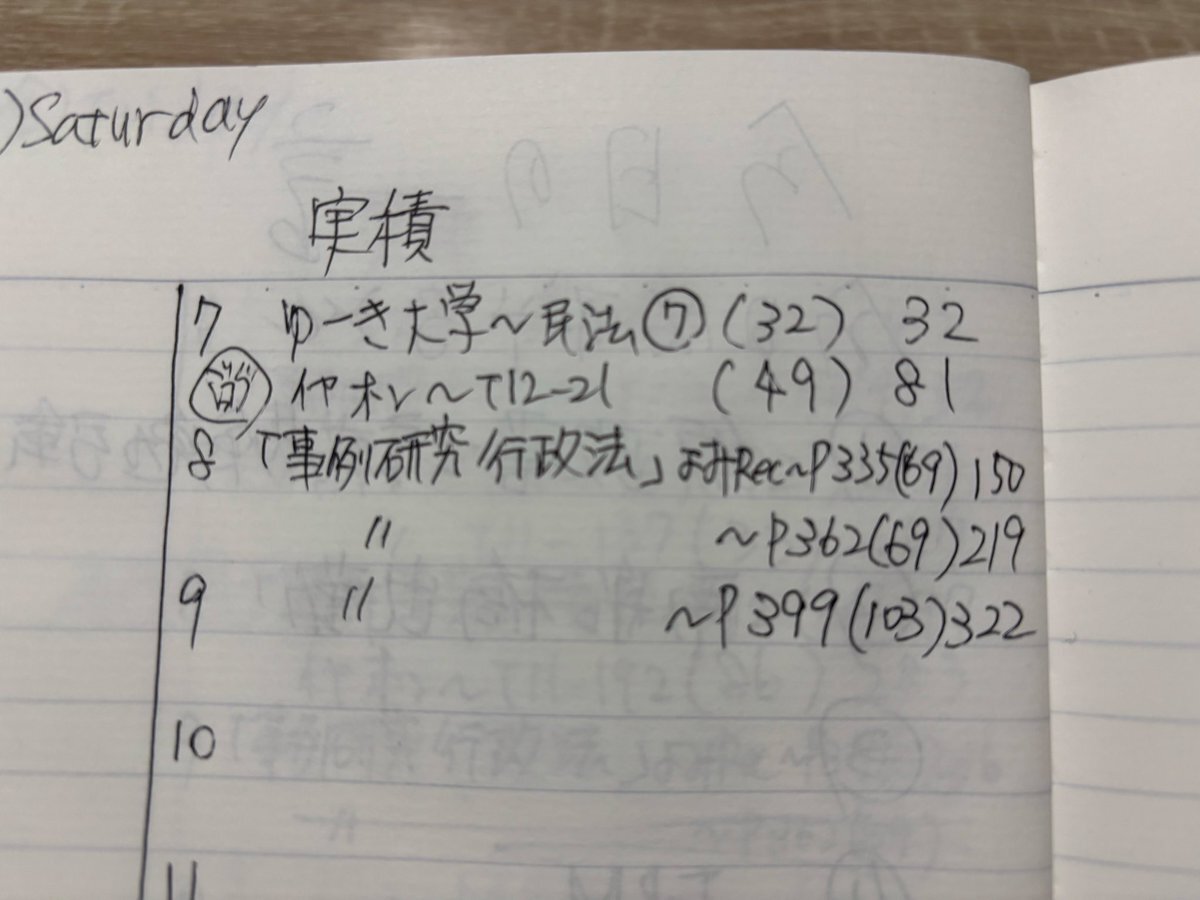 )Saturday
実積
7 ゆーき大学~民法⑦ (32) 32
イヤホン~T12-21 (49) 81
8 「事例研究 行政法」よみRec~P335(69)150
〃 ~P362(69)219
9 〃 ~P399(103)322
10
11